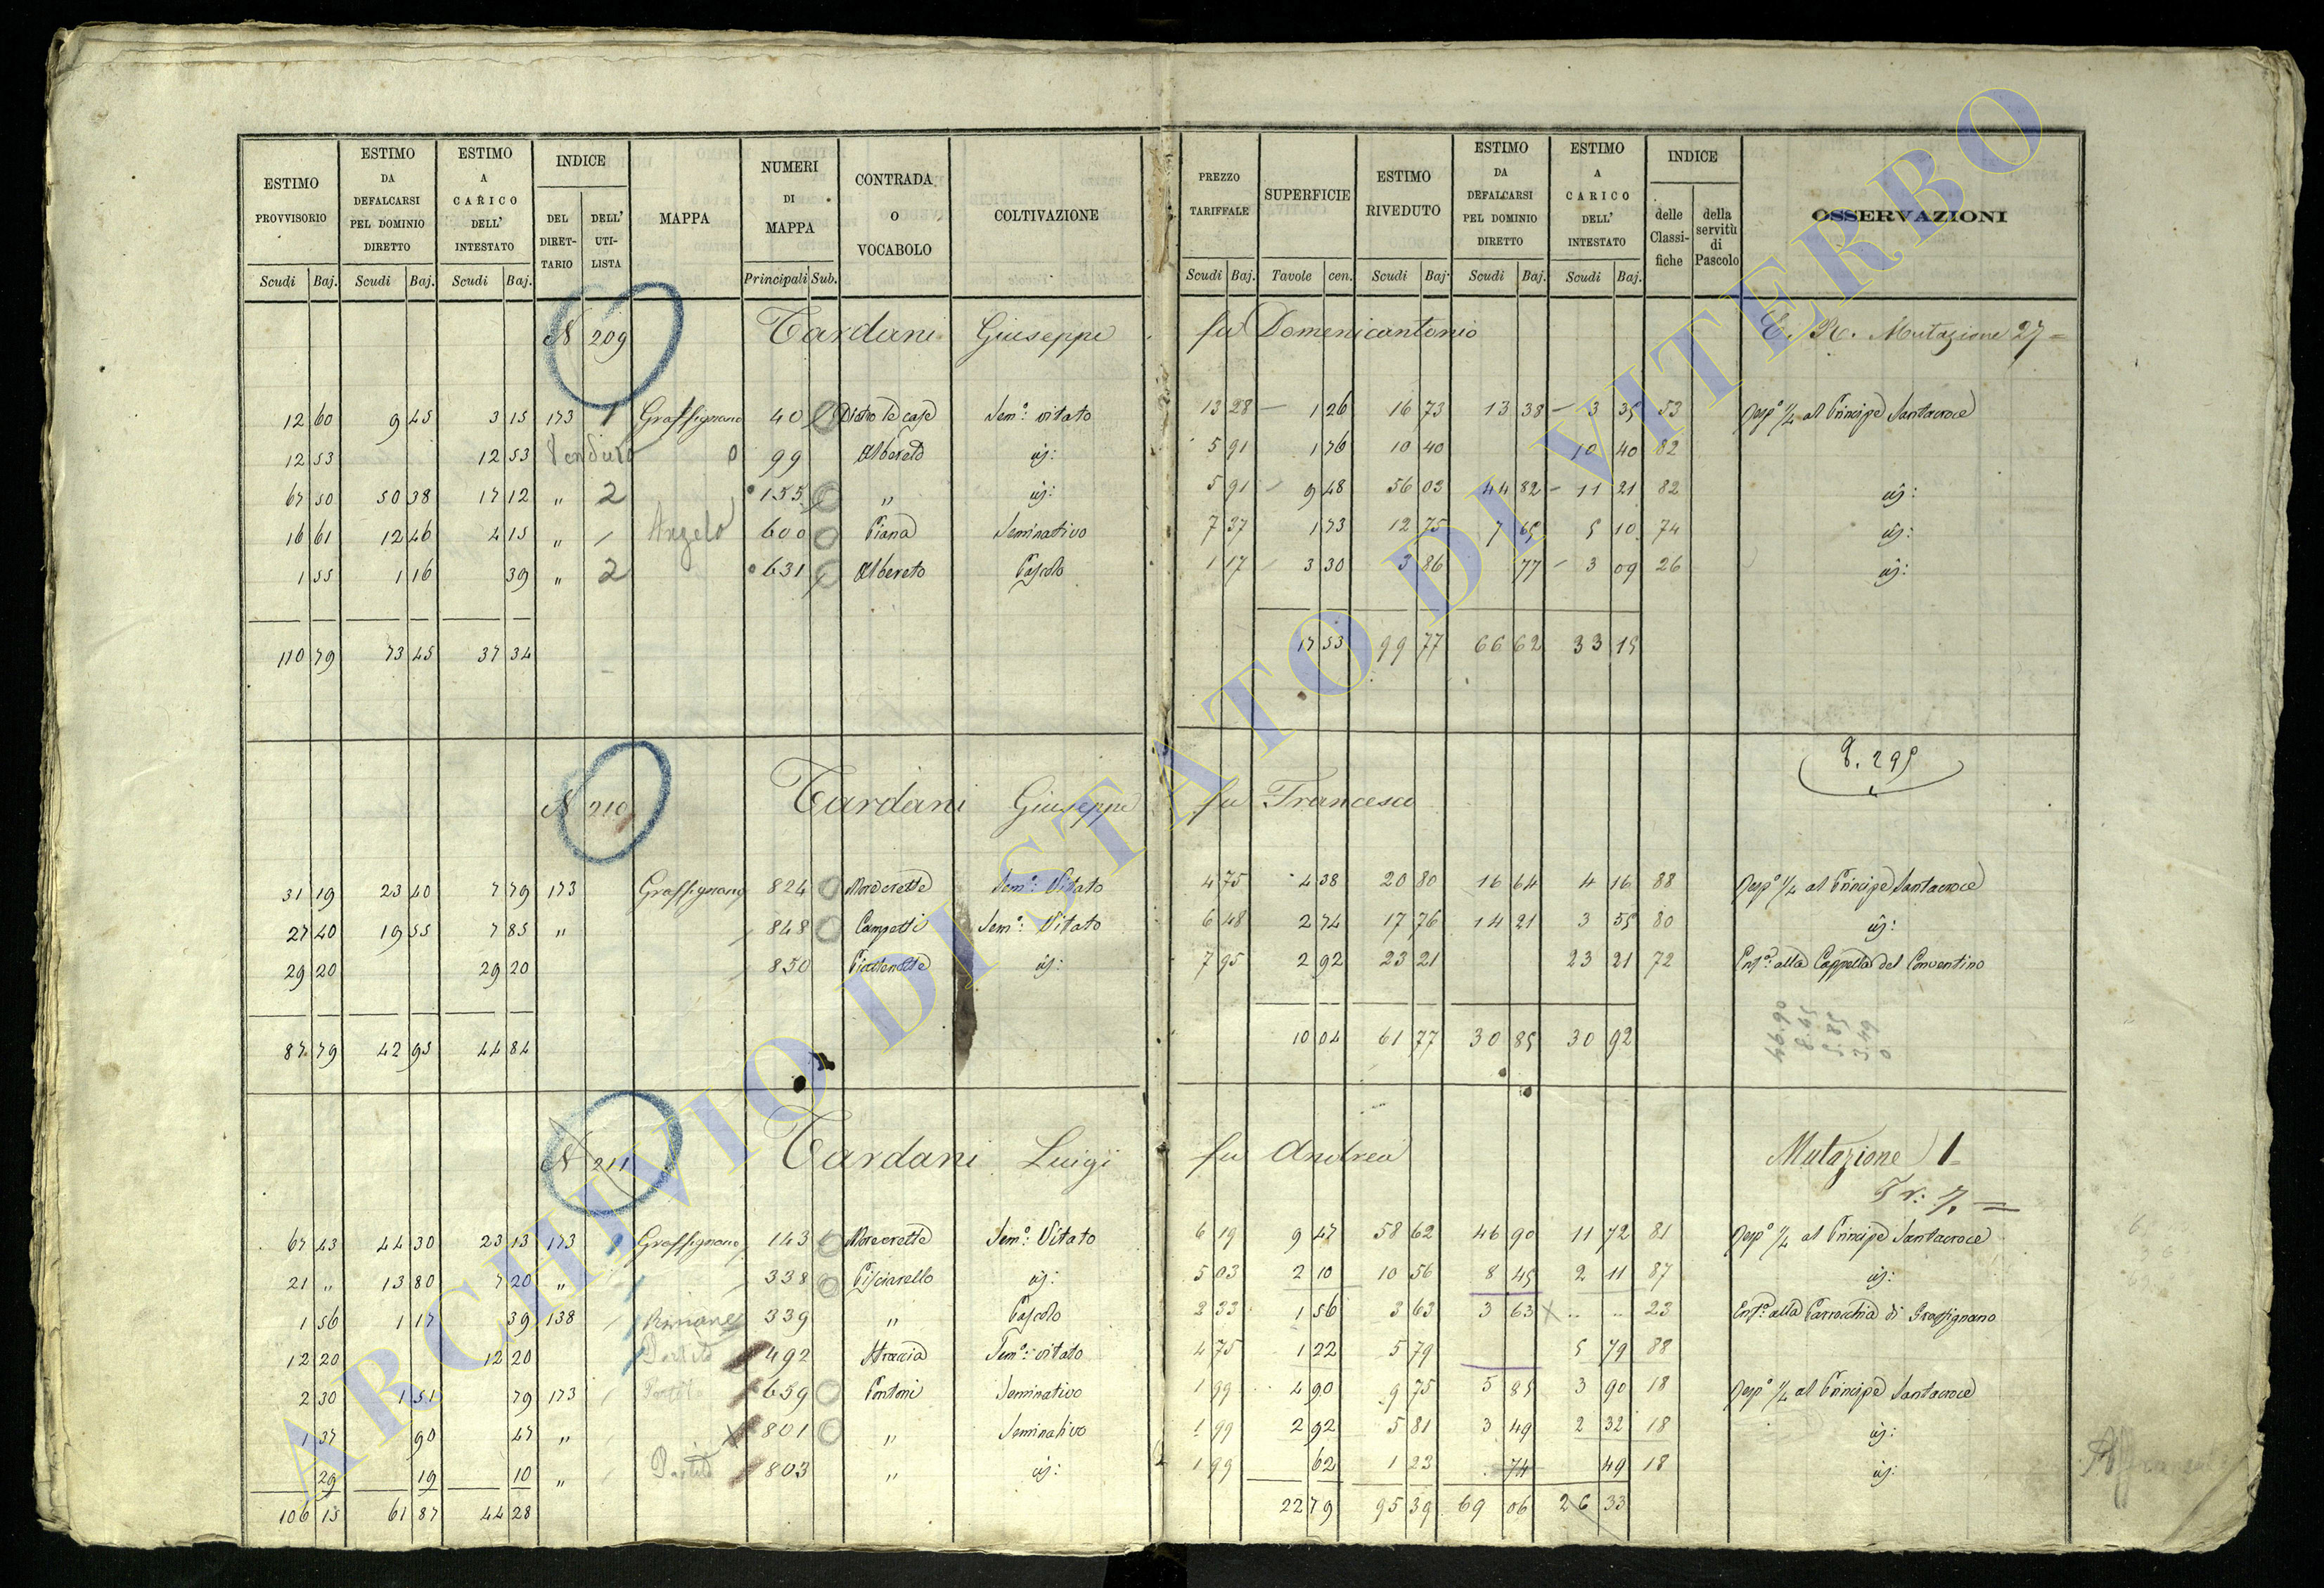 ESTIMO PROVVISORIO | ESTIMO DA DEFALCARSI PEL DOMINIO DIRETTO | ESTIMO A CARICO DELL' INTESTATO | INDICE | MAPPA | NUMERI DI MAPPA | CONTRADA O VOCABOLO | COLTIVAZIONE | PREZZO TARIFFALE | SUPERFICIE | ESTIMO RIVEDUTO | ESTIMO DA DEFALCARSI PEL DOMINIO DIRETTO | ESTIMO A CARICO DELL' INTESTATO | INDICE | OSSERVAZIONI
DEL DIRETTARIO | DELL' UTILISTA | delle Classifiche | della servitù di Pascolo
Scudi | Baj. | Scudi | Baj. | Scudi | Baj. | Principali | Sub. | Scudi | Baj. | Tavole | cen. | Scudi | Baj. | Scudi | Baj. | Scudi | Baj.
N 209 Tardani Giuseppe fu Domenicantonio E. R. Mutazione 27 =
12 60 | 9 45 | 3 15 | 173 | 1 | Graffignano | 40 | Dietro le case | Sem.º vitato | 13 28 | 1 26 | 16 73 | 13 38 | 3 35 | 53 | Risp.º 1/4 al Principe Santacroce
12 53 | 12 53 | Venduto | 99 | Albereto | id: | 5 91 | 1 76 | 10 40 | 10 40 | 82
67 50 | 50 38 | 17 12 | " | 2 | 155 | " | id: | 5 91 | 9 48 | 56 03 | 44 82 | 11 21 | 82 | id:
16 61 | 12 46 | 4 15 | " | Angelo | 600 | Piana | Seminativo | 7 37 | 1 73 | 12 75 | 7 65 | 5 10 | 74 | id:
1 55 | 1 16 | 39 | " | 2 | 631 | Albereto | Pascolo | 1 17 | 3 30 | 3 86 | 77 | 3 09 | 26 | id:
110 79 | 73 45 | 37 34 | 17 53 | 99 77 | 66 62 | 33 15
N 210 Tardani Giuseppe fu Francesco
31 19 | 23 40 | 7 79 | 173 | Graffignano | 824 | Morcrette | Sem.º Vitato | 4 75 | 4 38 | 20 80 | 16 64 | 4 16 | 88 | Risp.º 1/4 al Principe Santacroce
27 40 | 19 55 | 7 85 | " | 848 | Campetti | Sem.º Vitato | 6 48 | 2 74 | 17 76 | 14 21 | 3 55 | 80 | id:
29 20 | 29 20 | 850 | id: | 7 95 | 2 92 | 23 21 | 23 21 | 72 | alla Cappella del Conventino
46.90
8.45
5.85
3.49
0
87 79 | 42 95 | 44 84 | 10 04 | 61 77 | 30 85 | 30 92
N 211 Tardani Luigi fu Andrea Mutazione 1
67 43 | 44 30 | 23 13 | 173 | Graffignano | 143 | Morcrette | Sem.º Vitato | 6 19 | 9 47 | 58 62 | 46 90 | 11 72 | 81 | Risp.º 1/4 al Principe Santacroce
21 " | 13 80 | 7 20 | " | 338 | Pisciarello | id: | 5 03 | 2 10 | 10 56 | 8 45 | 2 11 | 87 | id:
1 56 | 1 17 | 39 | 138 | Rimane | 339 | " | Pascolo | 2 33 | 1 56 | 3 63 | 3 63 | 23 | alla Parrocchia di Graffignano
12 20 | 12 20 | 492 | Straccia | Sem.º vitato | 4 75 | 1 22 | 5 79 | 5 79 | 88
2 30 | 1 51 | 79 | 173 | 659 | Pontoni | Seminativo | 1 99 | 4 90 | 9 75 | 5 85 | 3 90 | 18 | Risp.º 1/4 al Principe Santacroce
1 37 | 90 | 47 | " | 801 | " | Seminativo | 1 99 | 2 92 | 5 81 | 3 49 | 2 32 | 18 | id:
29 | 19 | 10 | " | 803 | " | id: | 1 99 | 62 | 1 23 | 74 | 49 | 18 | id:
106 15 | 61 87 | 44 28 | 22 79 | 95 39 | 69 06 | 26 33
ARCHIVIO DI STATO DI VITERBO